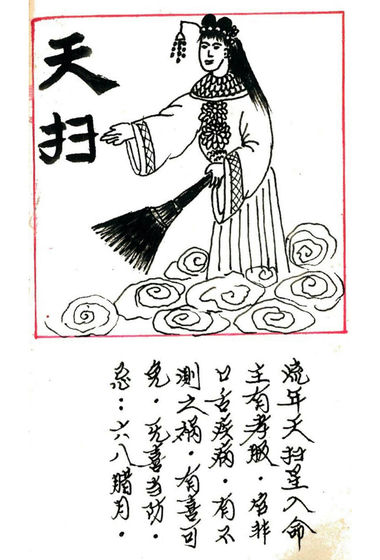 天扫
流年天扫星入命
主有孝服．官非
口舌疾病．有不
測之祸．有喜可
免．无喜当防．
忌：六八腊月．